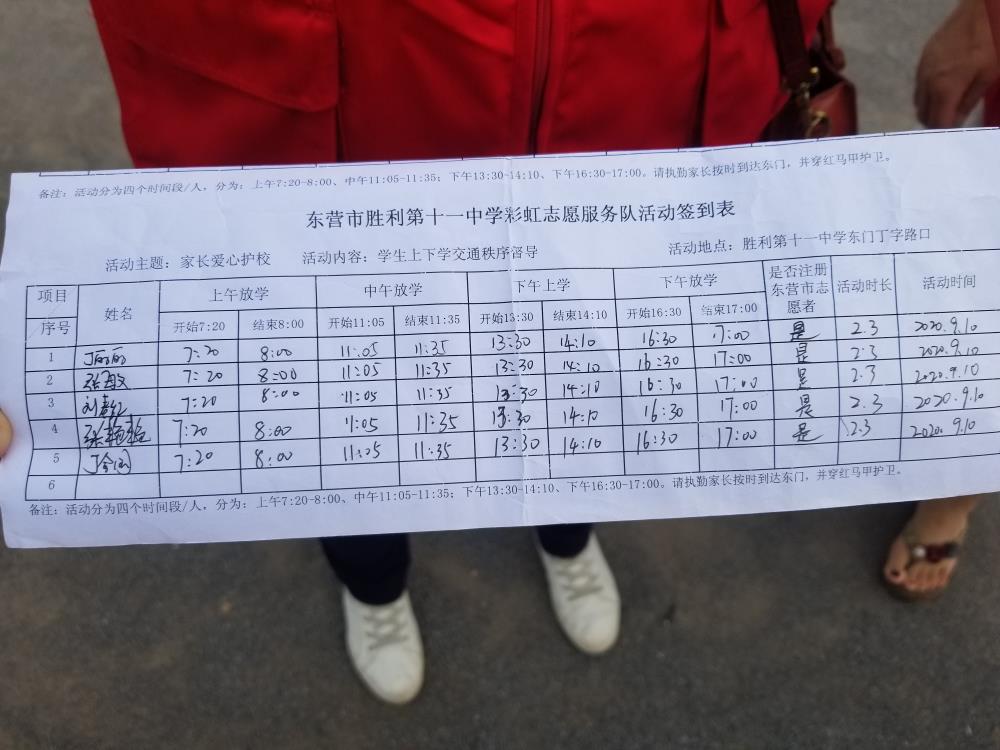 备注：活动分为四个时间段/人，分为：上午7:20-8:00、中午11:05-11:35；下午13:30-14:10、下午16:30-17:00。请执勤家长按时到达东门，并穿红马甲护卫。
东营市胜利第十一中学彩虹志愿服务队活动签到表
活动主题：家长爱心护校 活动内容：学生上下学交通秩序督导 活动地点：胜利第十一中学东门丁字路口
项目 序号 姓名 上午放学 中午放学 下午上学 下午放学 是否注册东营市志愿者 活动时长 活动时间
开始7:20 结束8:00 开始11:05 结束11:35 开始13:30 结束14:10 开始16:30 结束17:00
1 丁丽丽 7:20 8:00 11:05 11:35 13:30 14:10 16:30 17:00 是 2.3 2020.9.10
2 7:20 8:00 11:05 11:35 13:30 14:10 16:30 17:00 是 2.3 2020.9.10
3 7:20 8:00 11:05 11:35 13:30 14:10 16:30 17:00 是 2.3 2020.9.10
4 7:20 8:00 11:05 11:35 13:30 14:10 16:30 17:00 是 2.3 2020.9.10
5 7:20 8:00 11:05 11:35 13:30 14:10 16:30 17:00 是 2.3 2020.9.10
6
备注：活动分为四个时间段/人，分为：上午7:20-8:00、中午11:05-11:35；下午13:30-14:10、下午16:30-17:00。请执勤家长按时到达东门，并穿红马甲护卫。